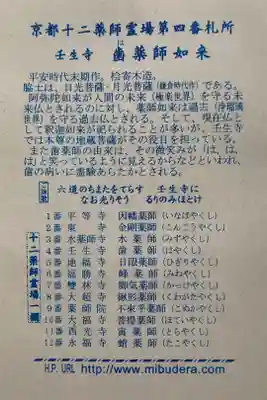 京都十二薬師霊場第四番札所
壬生寺 歯薬師如来
平安時代末期作。桧寄木造。
脇士は、日光菩薩・月光菩薩(鎌倉時代作)である。
阿弥陀如来が人間の未来(極楽世界)を守る未
来仏とされるのに対し、薬師如来は過去(浄瑠璃
世界)を守る過去仏とされる。そして、現世仏と
して釈迦如来が祀られることが多いが、壬生寺
では本尊の地蔵菩薩がその役目を担っている。
また歯薬師の由来は、その微笑みが「は、は、
は」と笑っているように見えるからなどといわれ、
歯の病いに霊験あらたかとされる。
ご詠歌
六道のちまたをてらす 壬生寺に
なお光りそう るりのみほとけ
十二薬師霊場一覧
1番 平等寺 因幡薬師(いなばやくし)
2番 東寺 金剛薬師(こんごうやくし)
3番 水薬師寺 水薬師(みずやくし)
4番 壬生寺 歯薬師(はやくし)
5番 地福寺 日限薬師(ひぎりやくし)
6番 福勝寺 峰薬師(みねやくし)
7番 雙林寺
8番 大超寺 鍬形薬師(くわがたやくし)
9番 薬師院 不来乎薬師(こぬかやくし)
10番 大福寺 菩提薬師(ぼていやくし)
11番 西光寺 寅薬師(とらやくし)
12番 永福寺 蛸薬師(たこやくし)
H.P. URL http://www.mibudera.com/